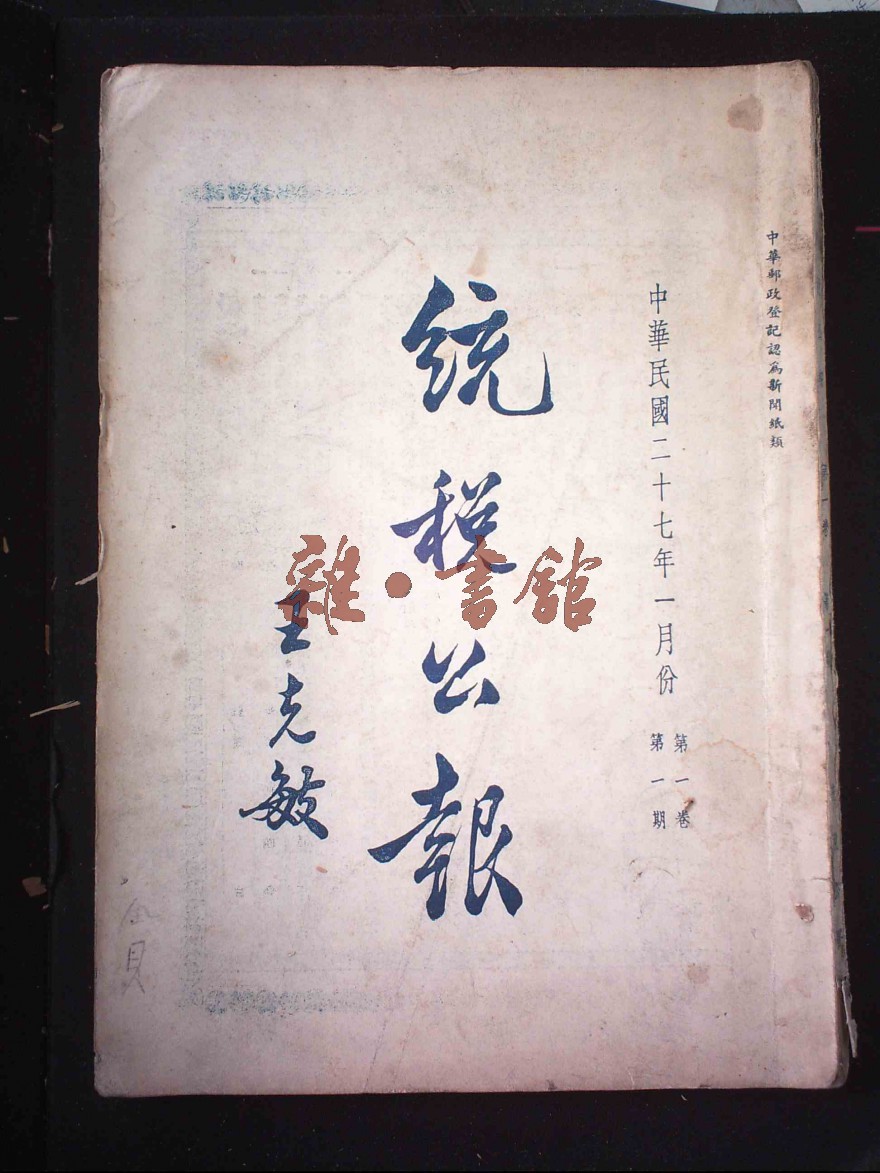 中華郵政登記認爲新聞紙類
中華民國二十七年一月份
第一卷
第一期
統稅公報
王克敏
雜·書館